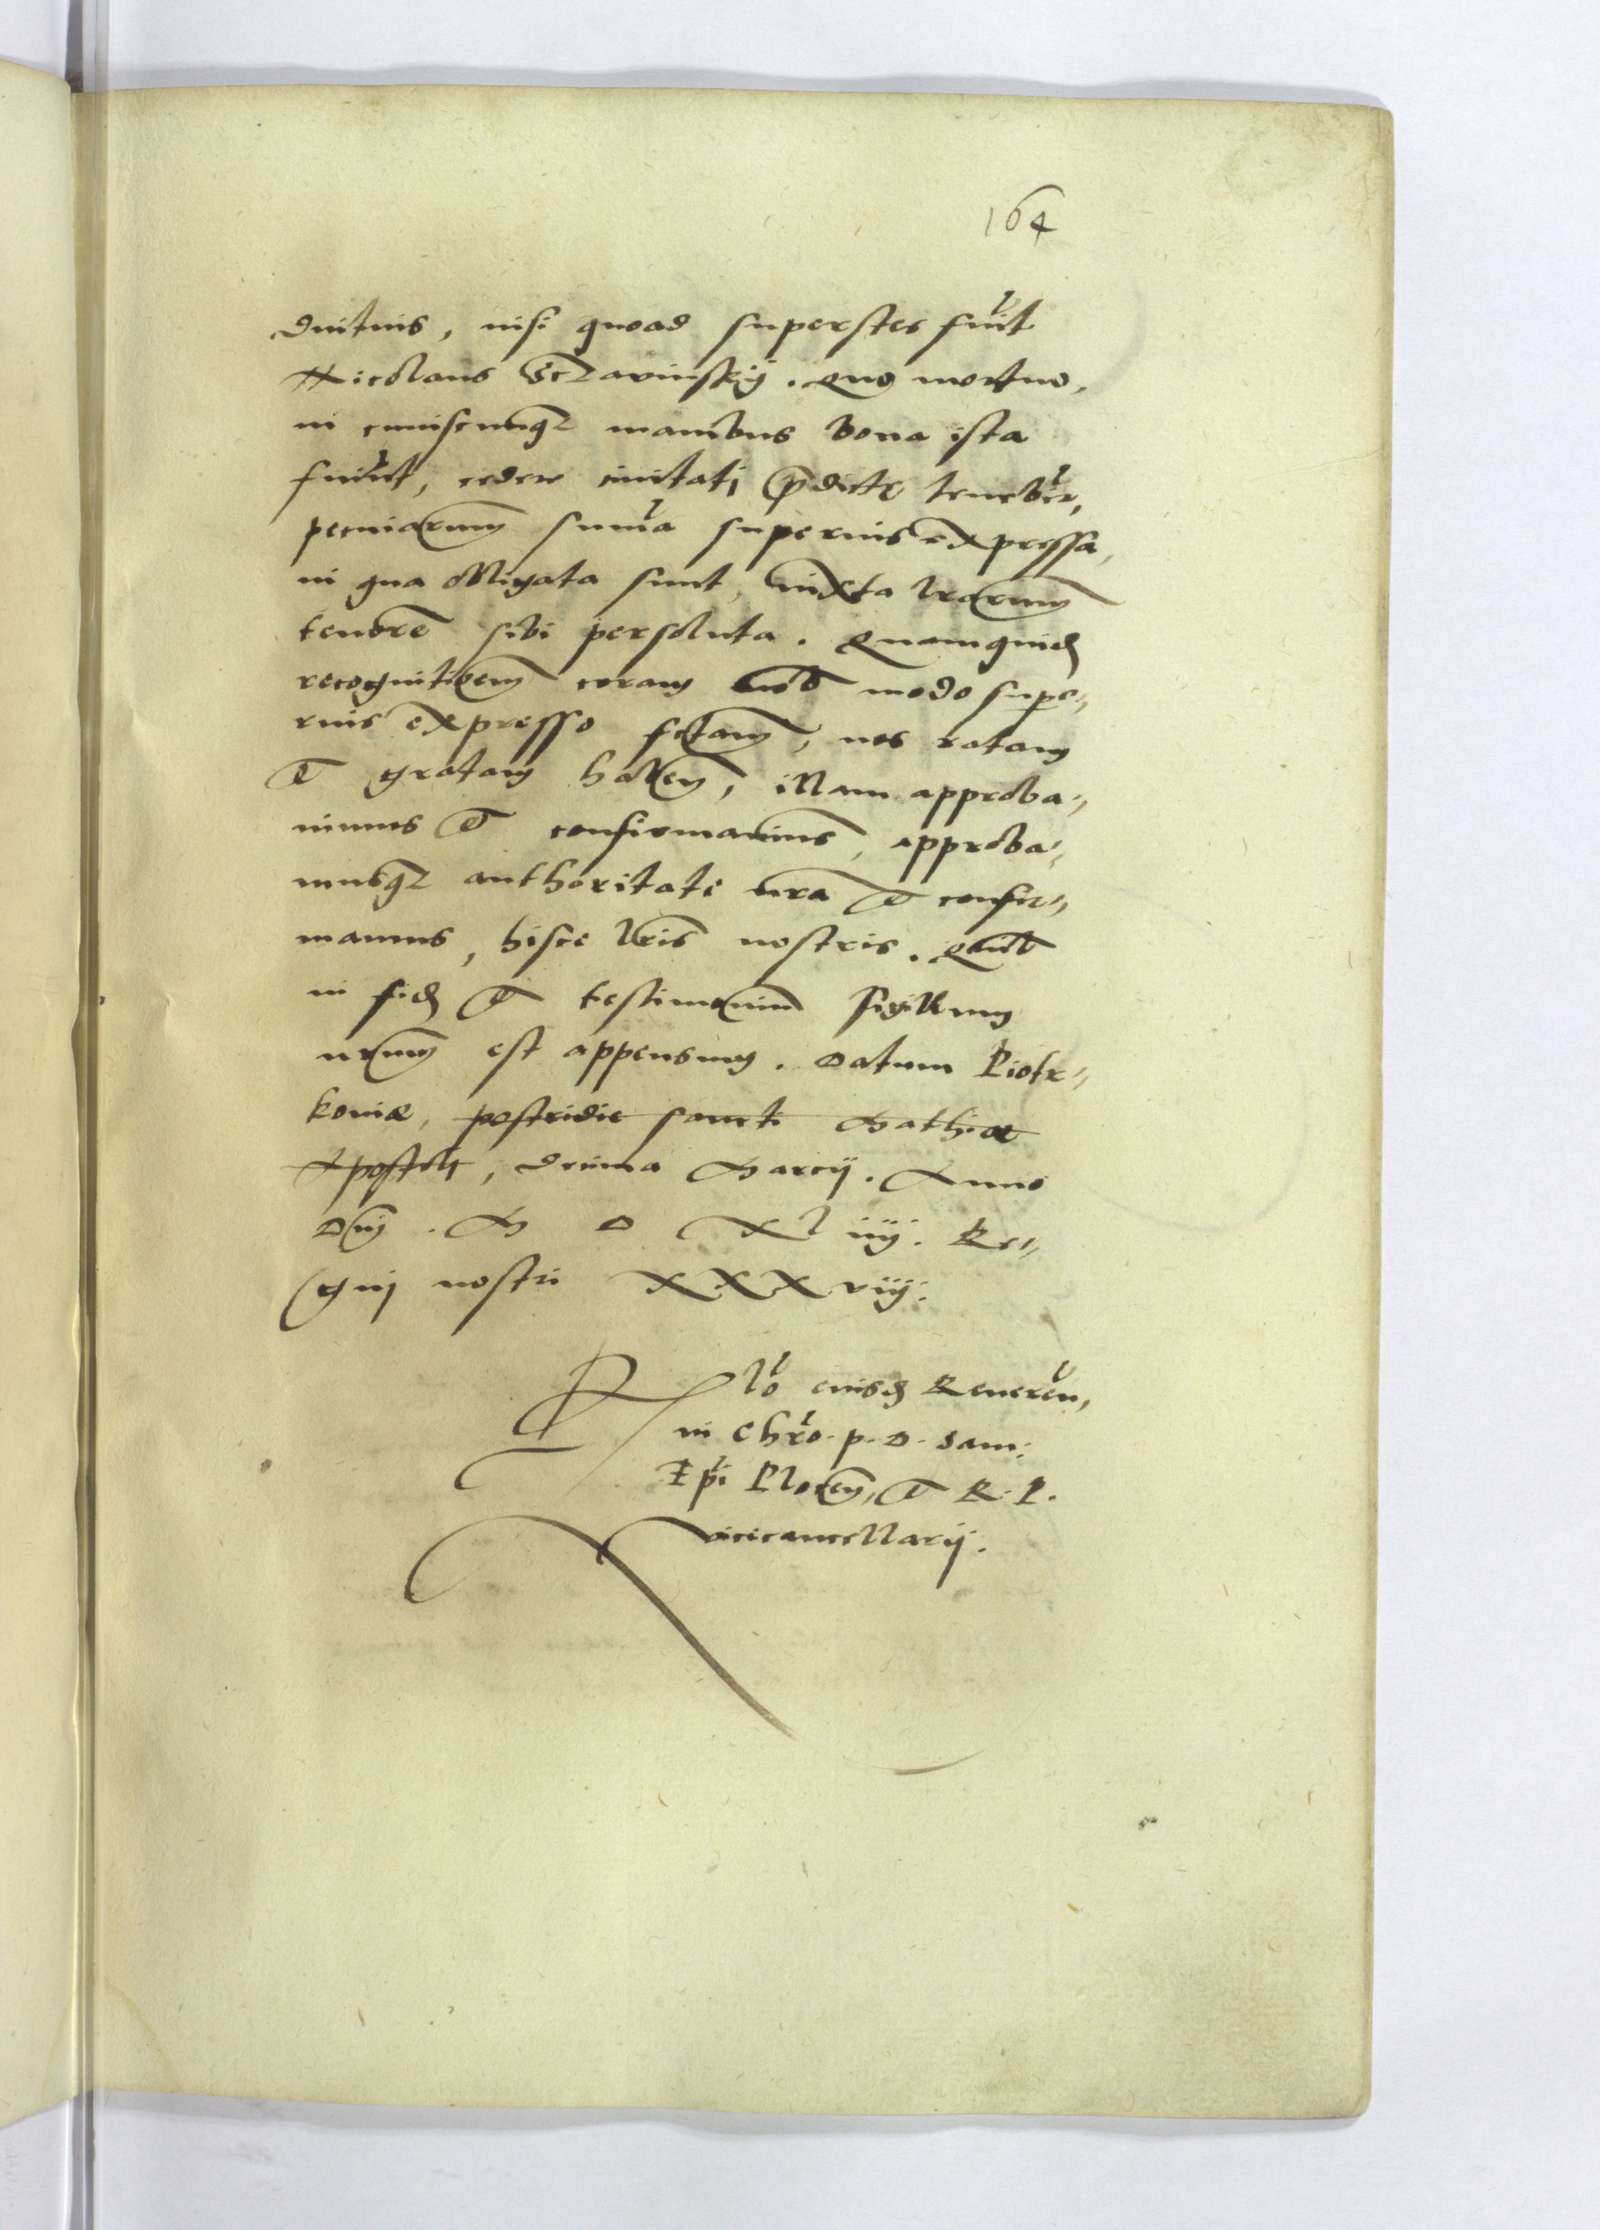 164
diutius, nisi quoad superstes fuit
Nicolaus Sczavinskÿ. Quo mortuo,
in cuiuscunq3 manibus bona ista
fuint, cedere civitati p̄dictę tenebūr,
pecuniarum suma superius expressa,
in qua obligata sunt, iuxta lrarum
tenorē sibi persoluta. Quamquid
recognitionem coram nob modo supe„
rius expresso fctam, nos ratam
et gratam haben, illam approba„
uimus et confirmauimus, approba„
musq3 authoritate nra et confir„
mamus, hisce lris nostris. Quib
in fid et testimonium sigillum
nrum est appensum. Datum Piotr„
koviæ, postridie sancti Mathiæ
Apostoli, decima Marcij. Anno
Dni. M D XL iiij. Re„
gnj nostri XXXviij.
Rlo eiusd Reueren,
in Chro. p. D. Sam:
Epi Plocen, et R. P.
vicecancellarij.